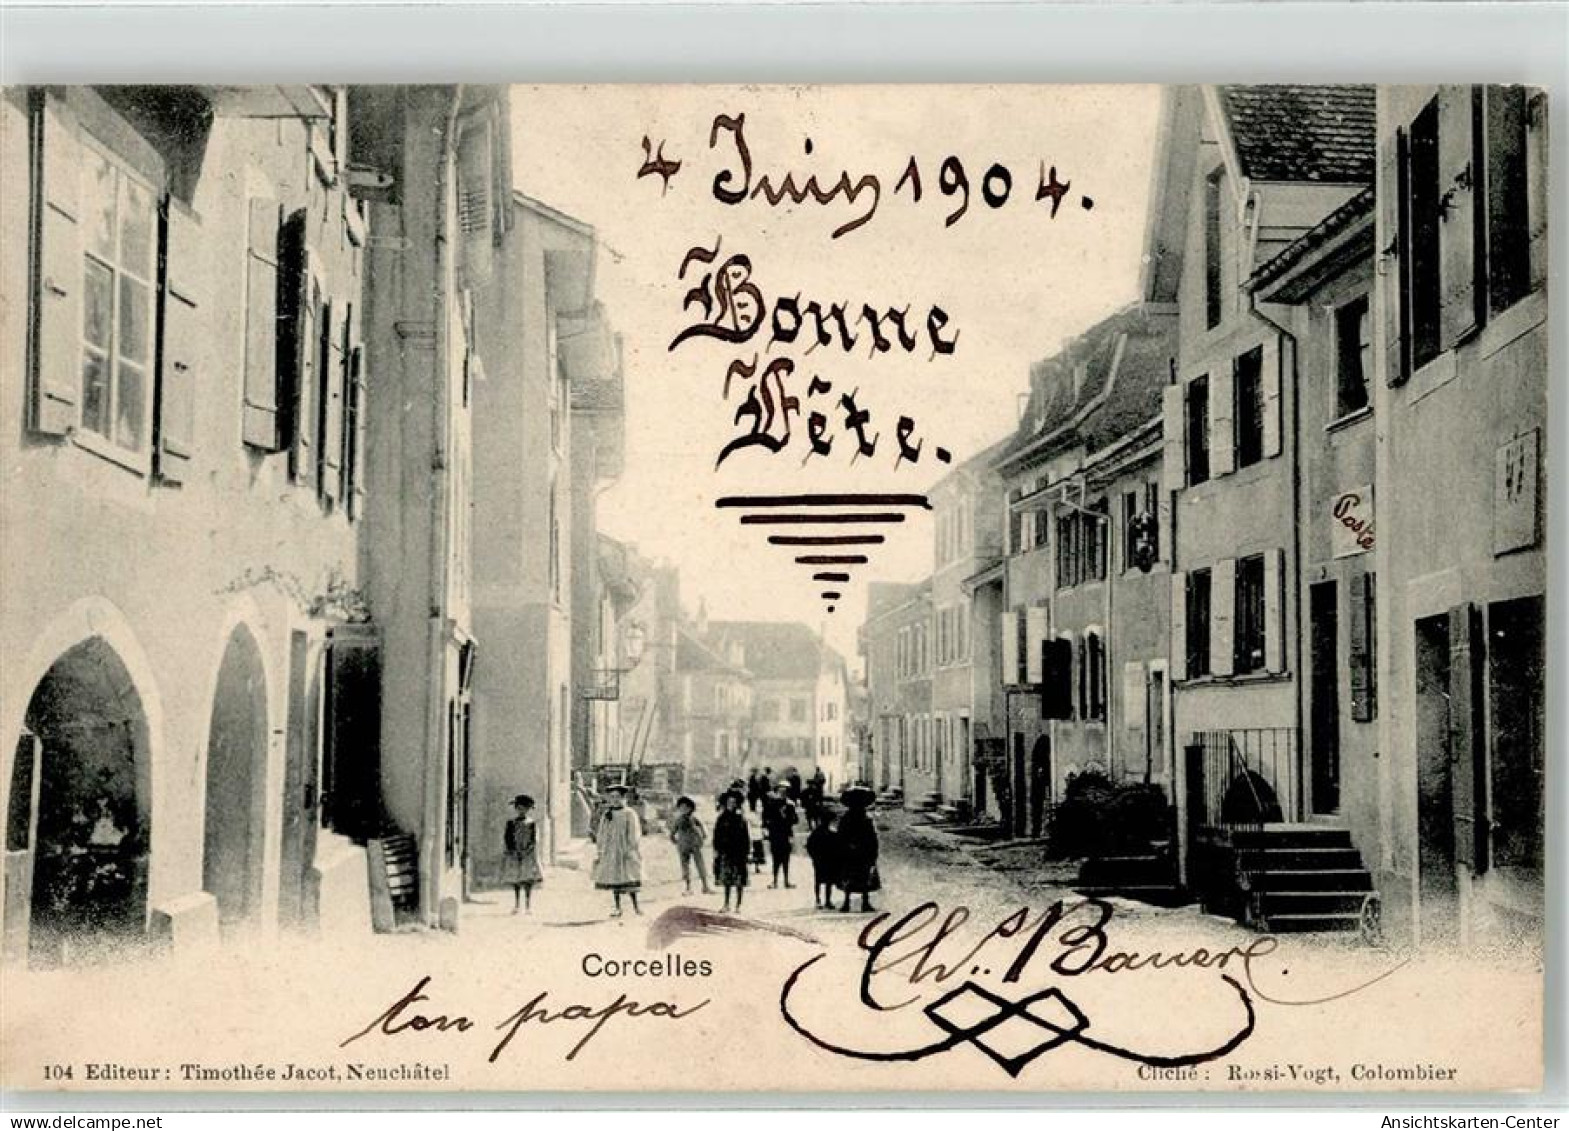 4 Juin 1904.
Bonne
Fête.
Poste
Corcelles
Ch.s Bauer.
ton papa
104 Editeur: Timothée Jacot, Neuchâtel
Cliché: Rossi-Vogt, Colombier
Ansichtskarten-Center